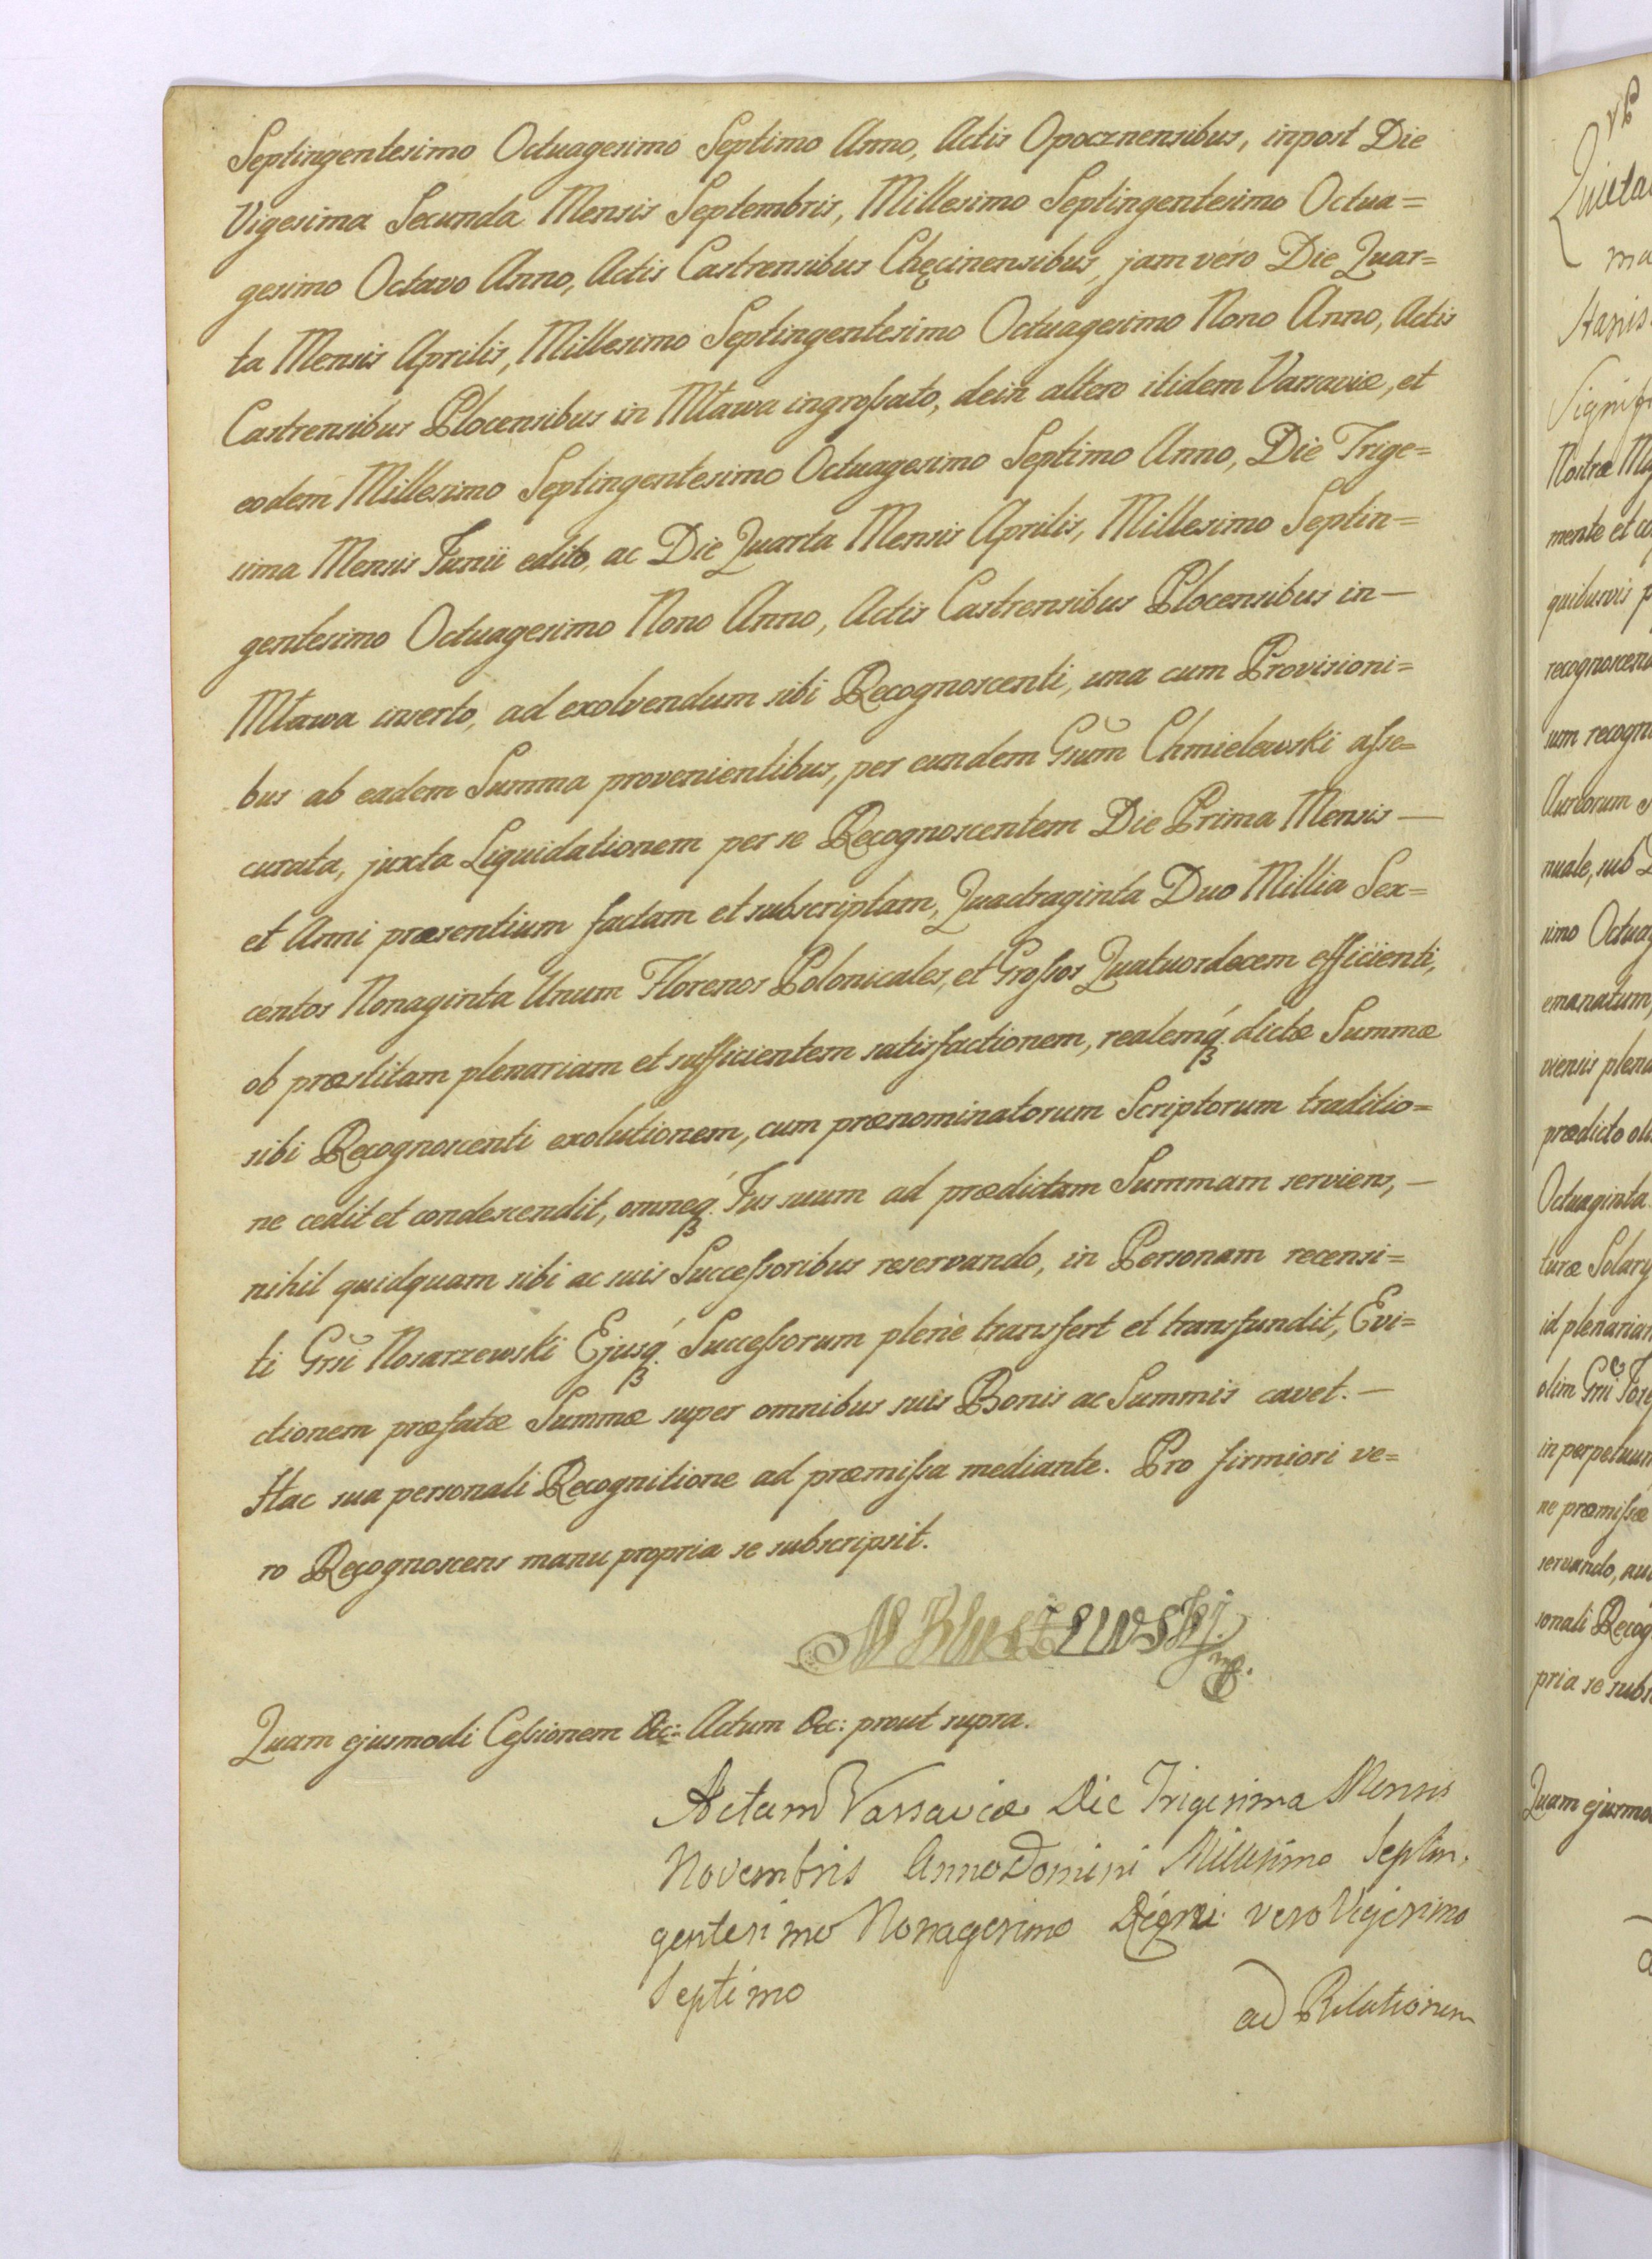 Septingentesimo Octuagesimo Septimo Anno, Actis Opocznensibus, inpost Die
Vigesima Secunda Mensis Septembris, Millesimo Septingentesimo Octua=
gesimo Octavo Anno, Actis Castrensibus Chęcinensibus, jam vero Die Quar=
ta Mensis Aprilis, Millesimo Septingentesimo Octuagesimo Nono Anno, Actis
Castrensibus Plocensibus in Mława ingrossato, dein altero itidem Varsaviæ, et
eodem Millesimo Septingentesimo Octuagesimo Septimo Anno, Die Trige=
sima Mensis Junii edito, ac Die Quarta Mensis Aprilis, Millesimo Septin=
gentesimo Octuagesimo Nono Anno, Actis Castrensibus Plocensibus in —
Mława inserto, ad exolvendum sibi Recognoscenti, una cum Provisioni=
bus ab eadem Summa provenientibus, per eundem Gsum Chmielewski asse=
curata, juxta Liquidationem per se Recognoscentem Die Prima Mensis —
et Anni præsentium factam et subscriptam, Quadraginta Duo Millia Sex=
centos Nonaginta Unum Florenos Polonicales, et Grossos Quatuordecem efficienti,
ob præstitam plenariam et sufficientem satisfactionem, realemq́ dictæ Summæ
sibi Recognoscenti exolutionem, cum prænominatorum Scriptorum traditio=
ne cedit et condescendit, omneq́ Jus suum ad prædictam Summam serviens, —
nihil quidquam sibi ac suis Successoribus reservando, in Personam recensi=
ti Grsi Nosarzewski Ejusq́ Successorum plenè transfert et transfundit, Evi=
ctionem præfatæ Summæ super omnibus suis Bonis ac Summis cavet. —
Hac sua personali Recognitione ad præmissa mediante. Pro firmiori ve=
ro Recognoscens manu propria se subscripsit.
mp.
Quam ejusmodi Cessionem &c: Actum &c: prout supra.
Actum Varsaviæ Die Trigesima Mensis
Novembris Anno Domini Millesimo Septin,
gentesimo Nonagesimo Regni vero Vigesimo
Septimo
ad Relationem